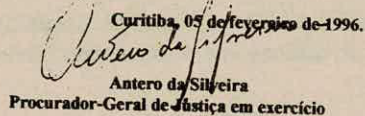 Curitiba, 05 de fevereiro de 1996.
Antero da Silveira
Procurador-Geral de Justiça em exercício